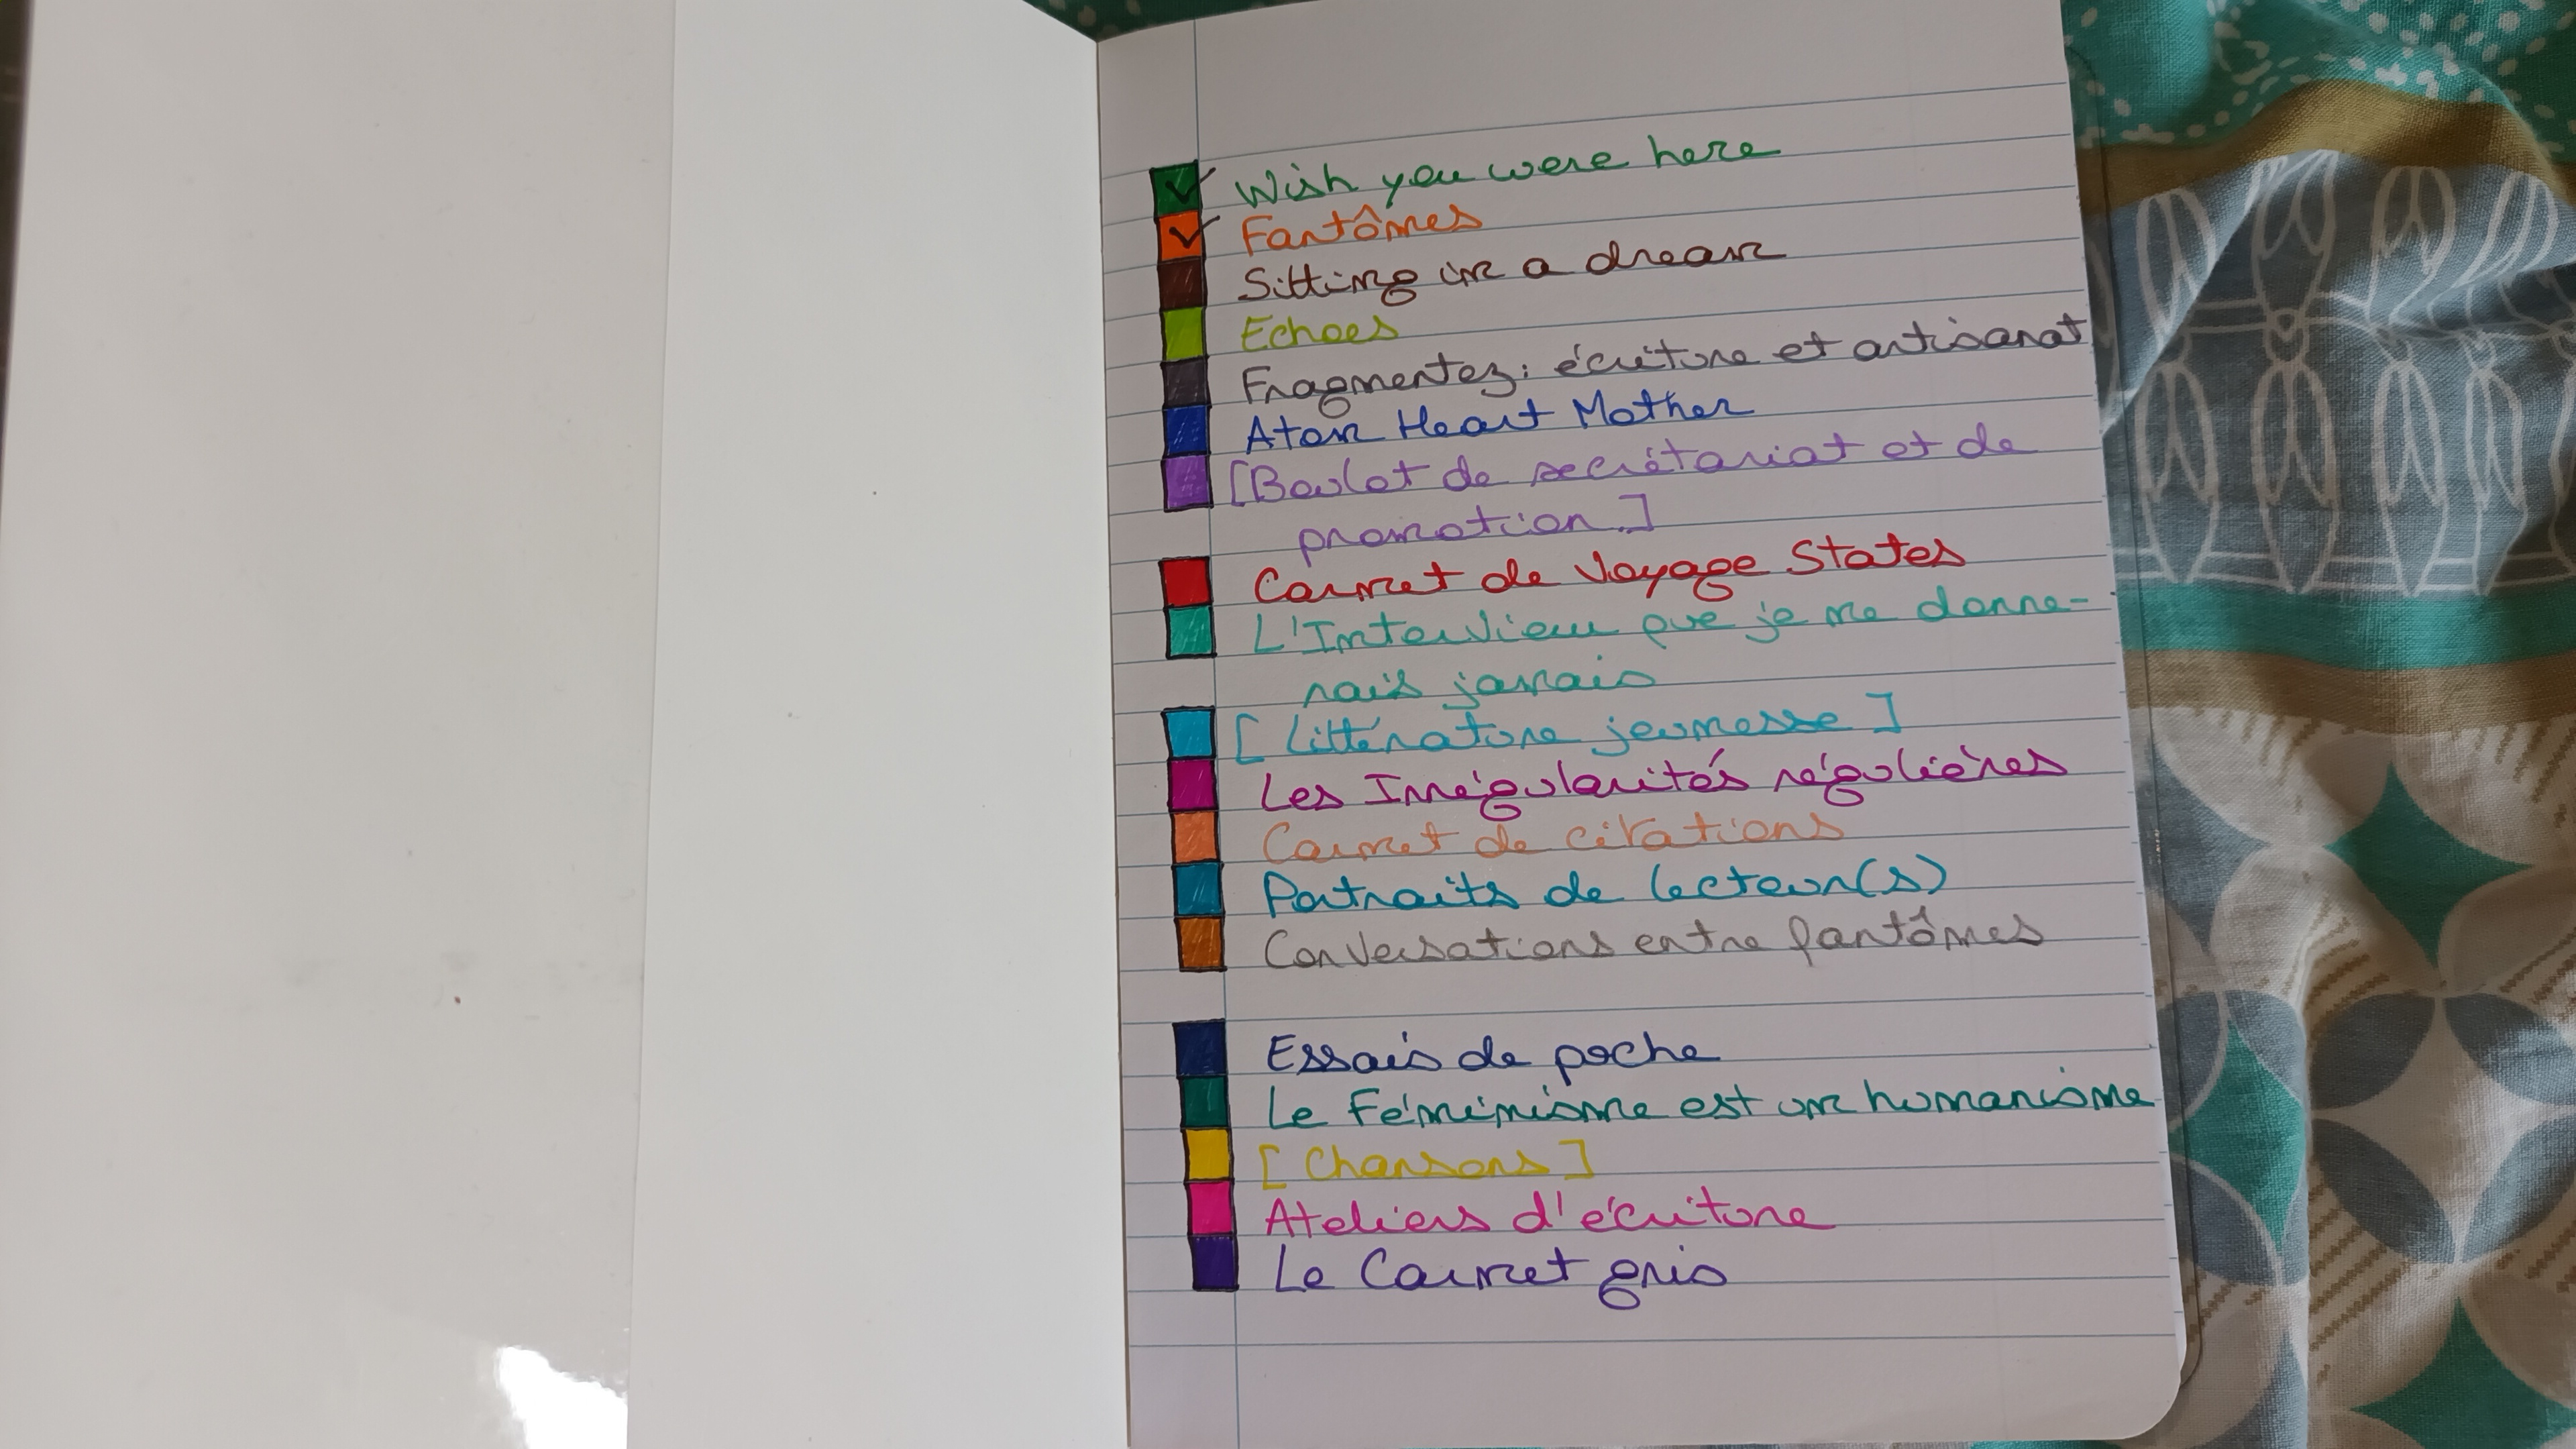 Wish you were here
Fantômes
Sitting in a dream
Echoes
Fragmentez : écriture et artisanat
Atom Heart Mother
[Boulot de secrétariat et de
promotion]
Carnet de Voyage States
L'Interview que je ne donne-
rais jamais
[Littérature jeunesse]
Les Irrégularités régulières
Carnet de citations
Portraits de lecteur(s)
Conversations entre fantômes
Essais de poche
Le Féminisme est un humanisme
[Chansons]
Ateliers d'écriture
Le Carnet gris